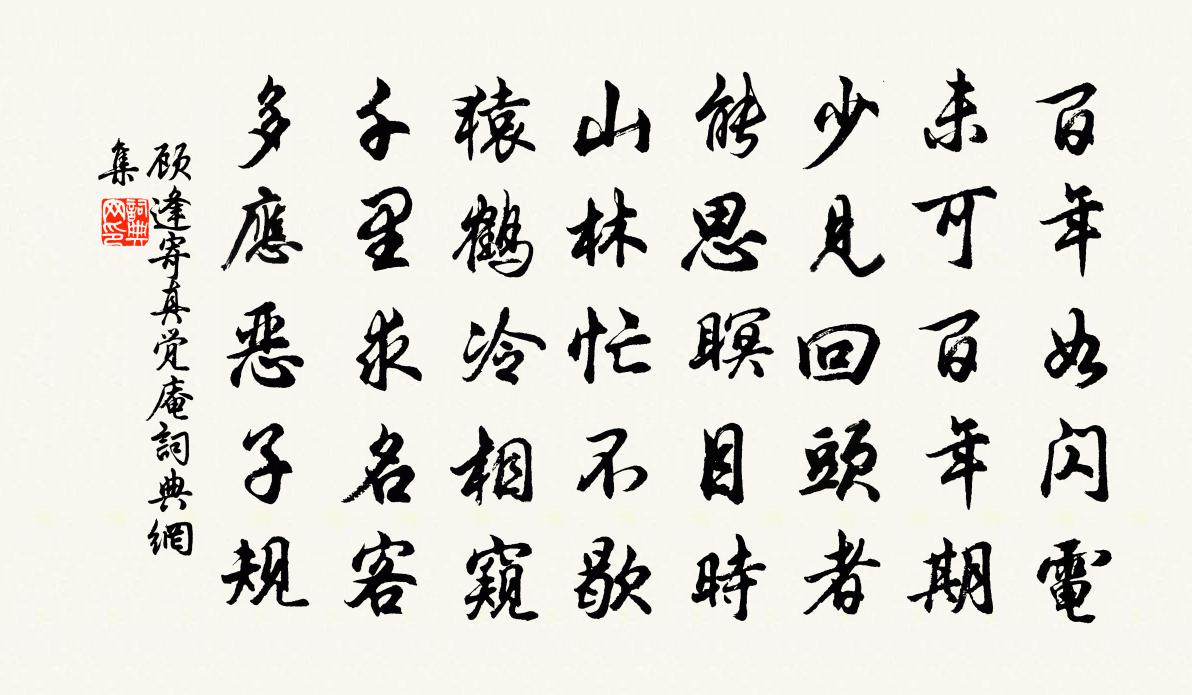 百年如闪電
未可百年期
少見回頭者
能思瞑目時
山林忙不歇
猿鶴冷相窺
千里求名客
多應惡子規
顾逢寄真覚庵詞典網
集
詞典
网印